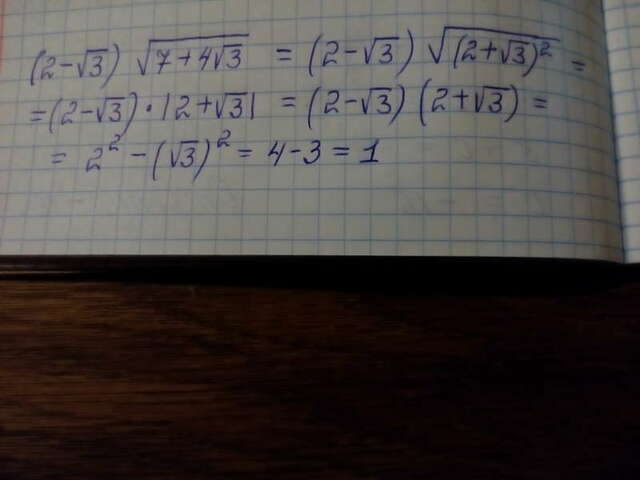 (2-√3) √(7+4√3) = (2-√3) √((2+√3)²) =
=(2-√3)·|2+√3| = (2-√3)(2+√3) =
= 2² -(√3)² = 4-3 = 1